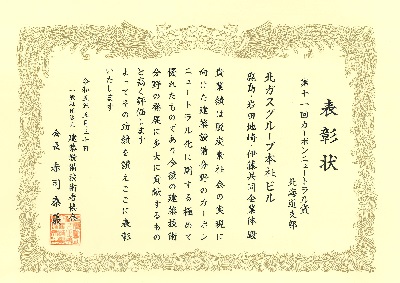 表彰状
第十一回カーボンニュートラル賞
北海道支部
北ガスグループ本社ビル
鹿島・岩田地崎・伊藤共同企業体 殿
貴業績は脱炭素社会の実現に
向けた建築設備分野のカーボン
ニュートラル化に関する極めて
優れたものであり今後の建築技術
分野の発展に多大に貢献するもの
と高く評価します
よってその功績を讃えここに表彰
いたします
令和五年 月 日
一般社団法人 建築設備技術者協会
会長